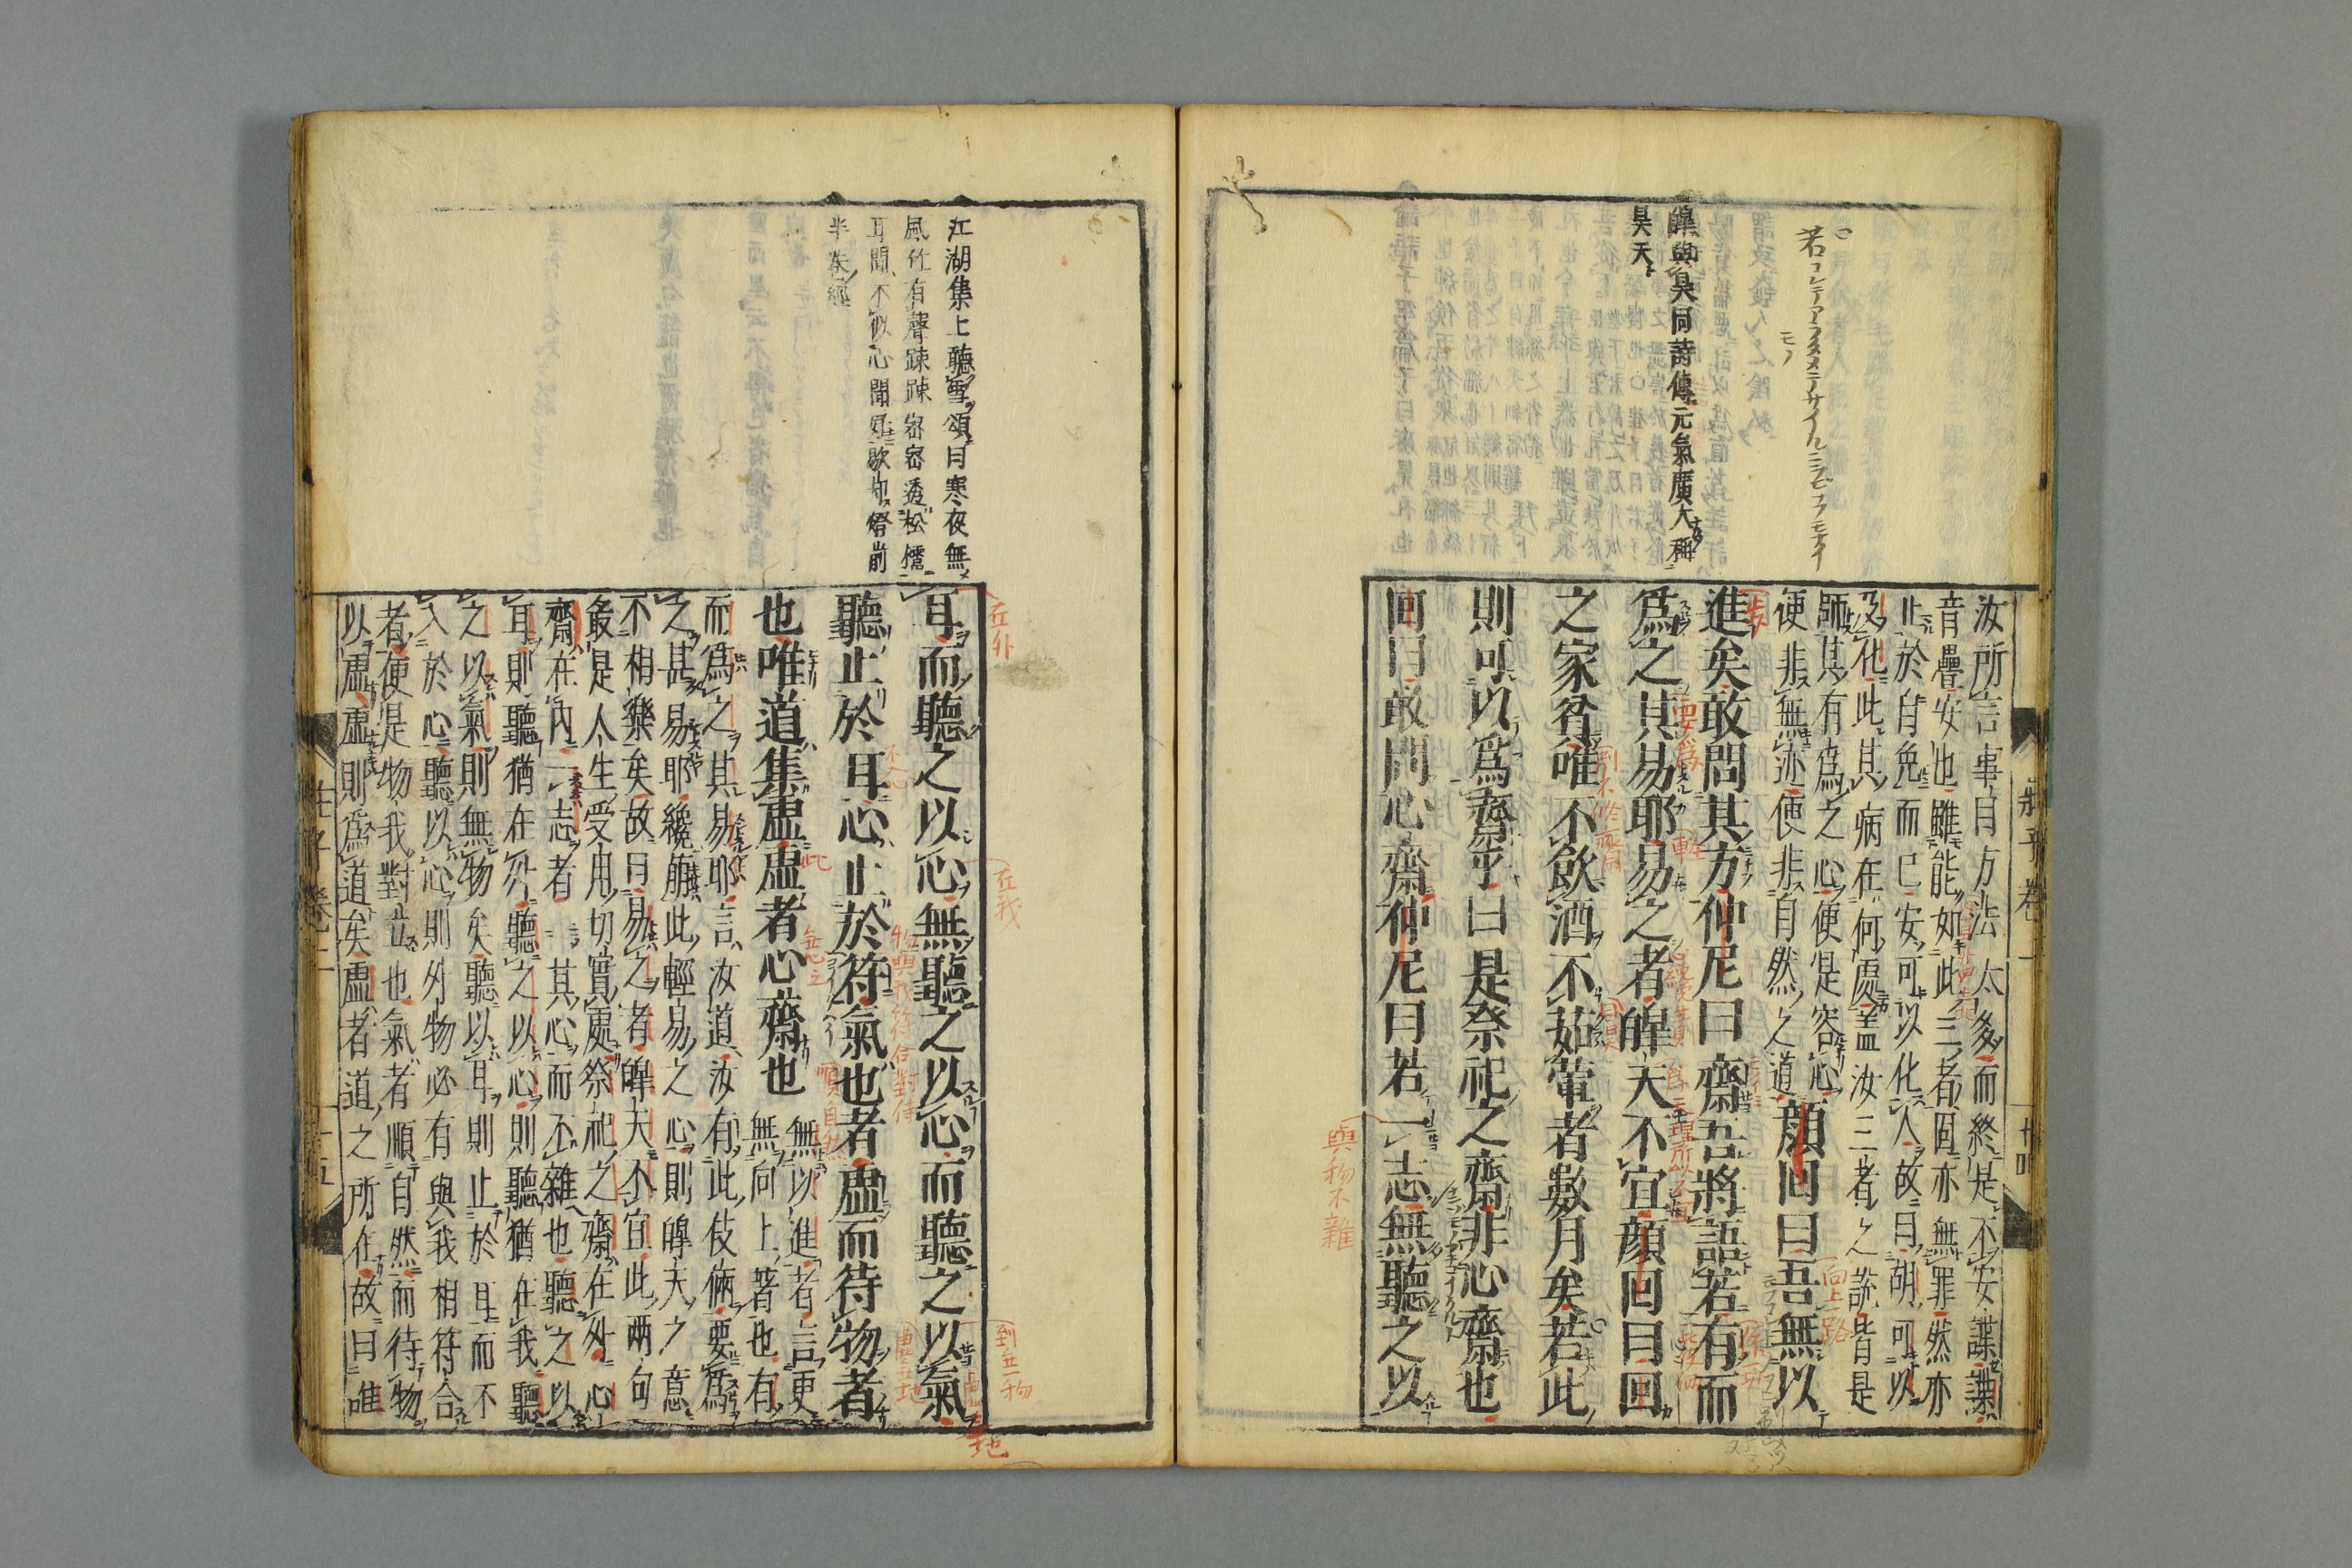 若
皡與昊同詩傳元氣廣大稱
昊天
汝所言事目方法太多而終是不安諜諜
音疊安也雖能如此三者固亦無罪然亦
止於自免而已安可以化人故曰胡可以
及化此其病在何處蓋汝三者之說皆是
師其有爲之心便是容心
便非無迹便非自然之道顏回曰吾無以
進矣敢問其方仲尼曰齋吾將語若有而
爲之其易耶易之者皡天不宜顏回曰回
之家貧唯不飲酒不茹葷者數月矣若此
則可以爲齋乎曰是祭祀之齋非心齋也
回曰敢問心齋仲尼曰若一志無聽之以
與物不雜
莊子卷二
江湖集上聽雪頌曰寒夜無
風竹有聲疎疎密密透松櫺
耳聞不似心聞好歇却燈前
半卷經
在外
在我
到無物
耳而聽之以心無聽之以心而聽之以氣
聽止於耳心止於符氣也者虛而待物者
也唯道集虛虛者心齋也
無以進者言更
無向上著也有
而爲之其易耶言汝道汝有此伎倆要爲
之甚易耶纔萌此輕易之心則皡天之意
不相樂矣故曰易之者皡天不宜此兩句
最是人生受用切實處祭祀之齋在外心
齋在內一志者一其心而不雜也聽之以
耳則聽猶在外聽之以心則聽猶在我聽
之以氣則無物矣聽以耳則止於耳而不
入於心聽以心則外物必有與我相符合
者便是物我對立也氣者順自然而待物
以虛虛則爲道矣虛者道之所在故曰唯
莊子卷二